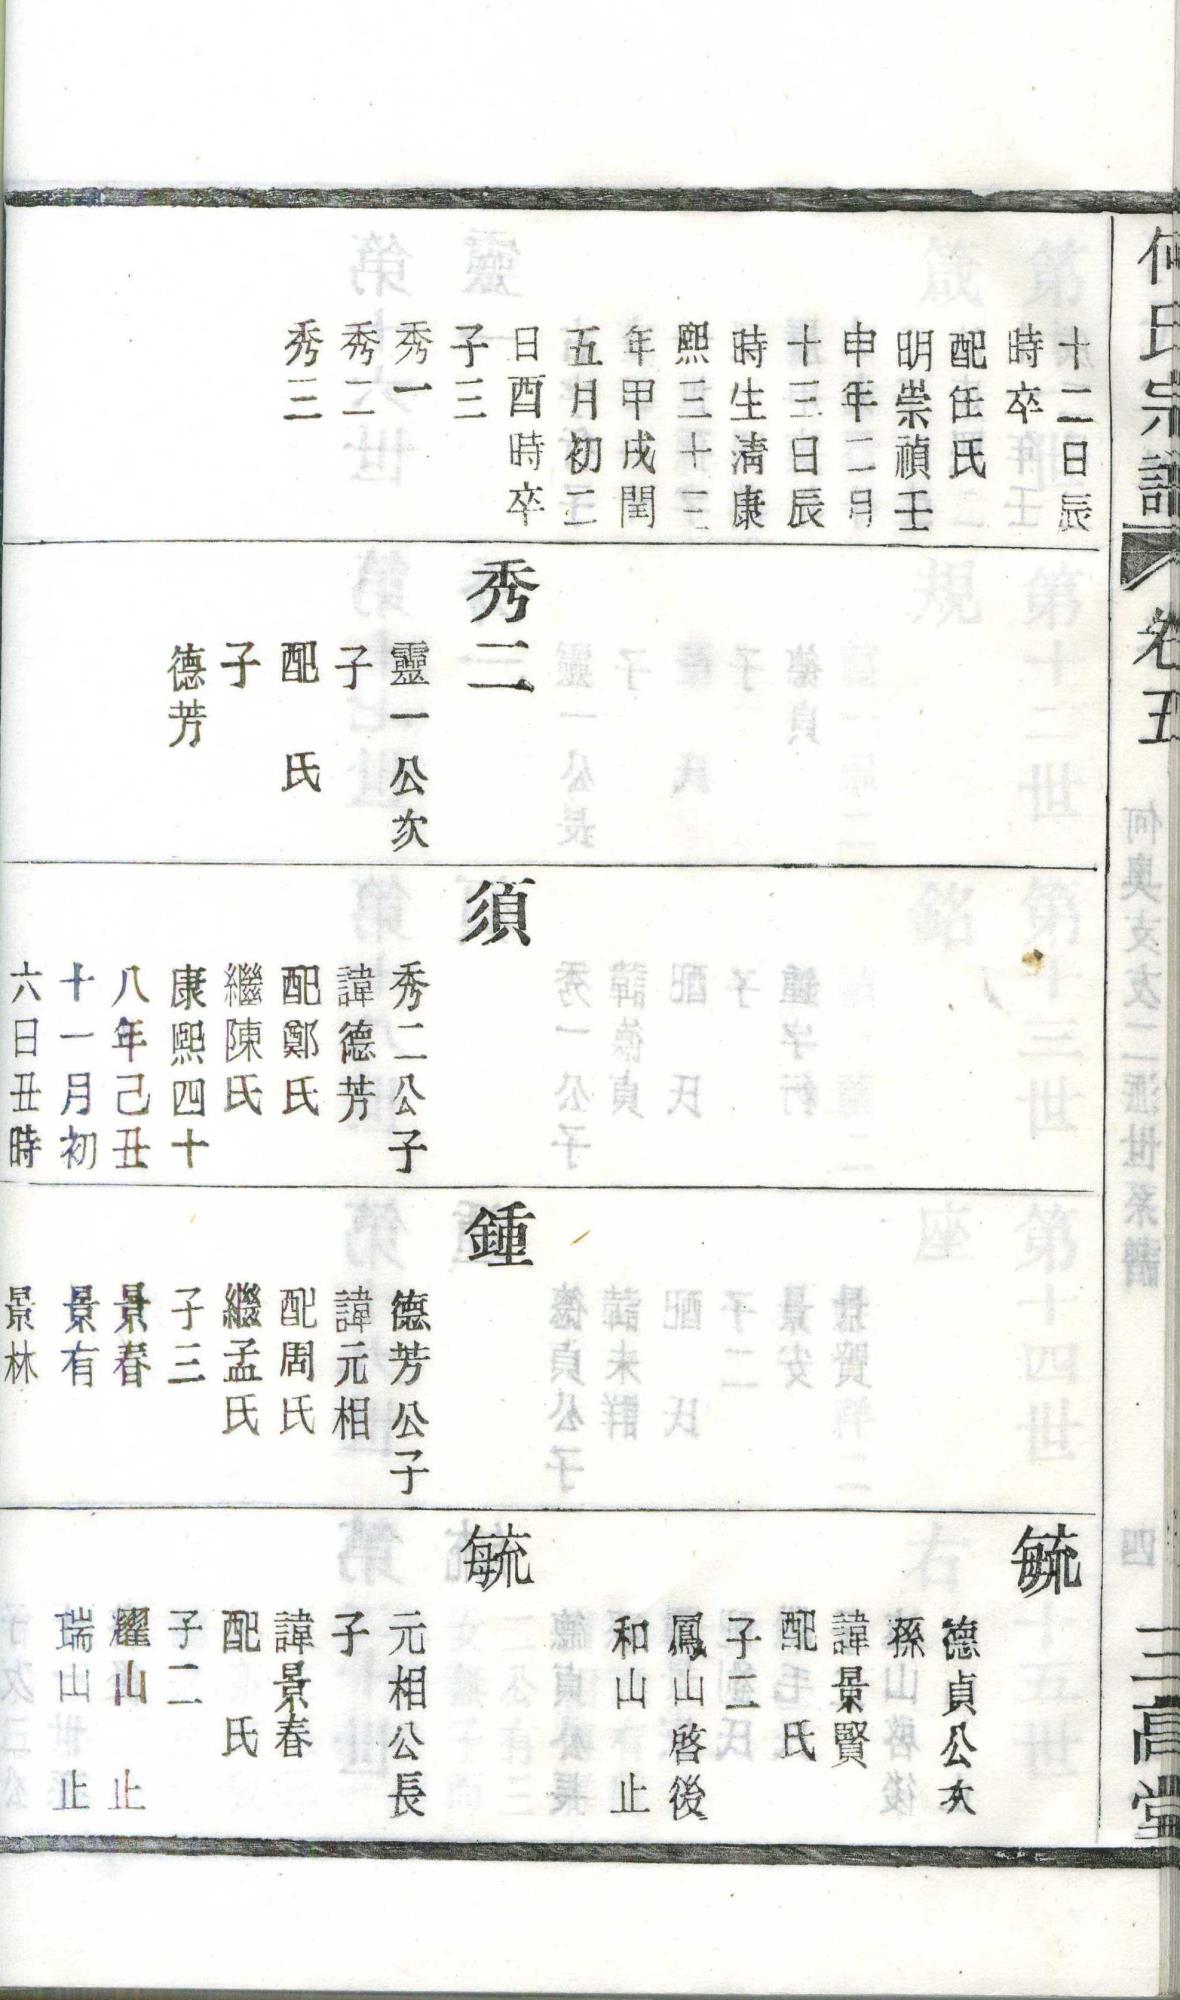 何氏宗譜
卷五
三高堂
十二日辰
時卒
配任氏
明崇禎壬
申年二月
十三日辰
時生清康
熙三十三
年甲戌閏
五月初二
日酉時卒
子三
秀一
秀二
秀三
秀二
靈一公次
子
配 氏
子
德芳
須
秀二公子
諱德芳
配鄭氏
繼陳氏
康熙四十
八年己丑
十一月初
六日丑時
鍾
德芳公子
諱元相
配周氏
繼孟氏
子三
景春
景有
景林
毓
德貞公次
孫
諱景賢
配毛氏
子二
鳳山啓後
和山 止
毓
元相公長
子
諱景春
配 氏
子二
耀山 止
瑞山 止